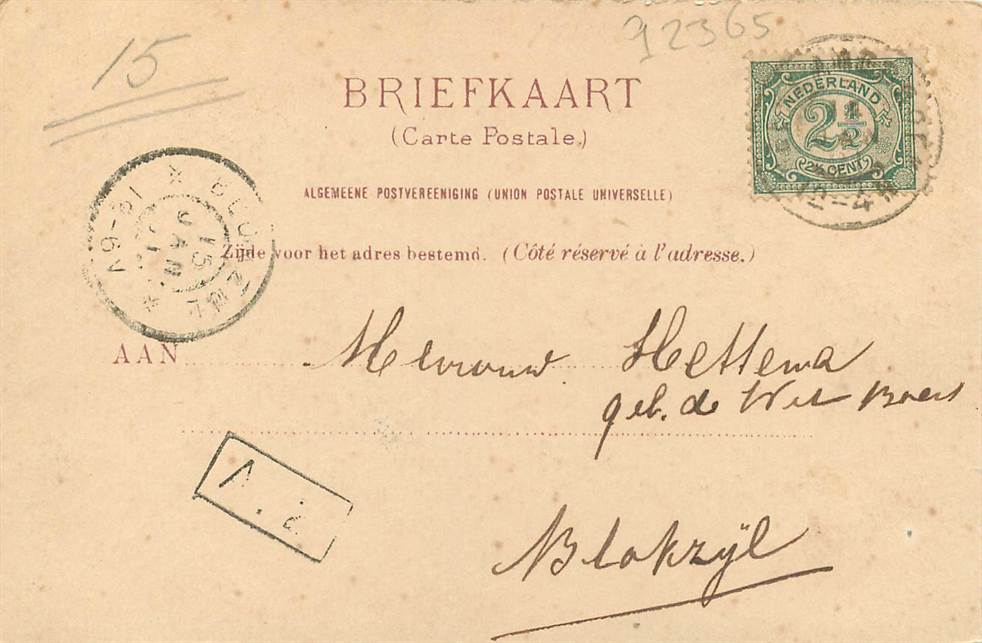 92365
15
BRIEFKAART
(Carte Postale.)
NEDERLAND
2½
2½ CENT
12-4N
ALGEMEENE POSTVEREENIGING (UNION POSTALE UNIVERSELLE)
15
JAN.
Zijde voor het adres bestemd. (Côté réservé à l'adresse.)
AAN Mevrouw Hettema
geb. de Wit
A. 2
Blokzÿl